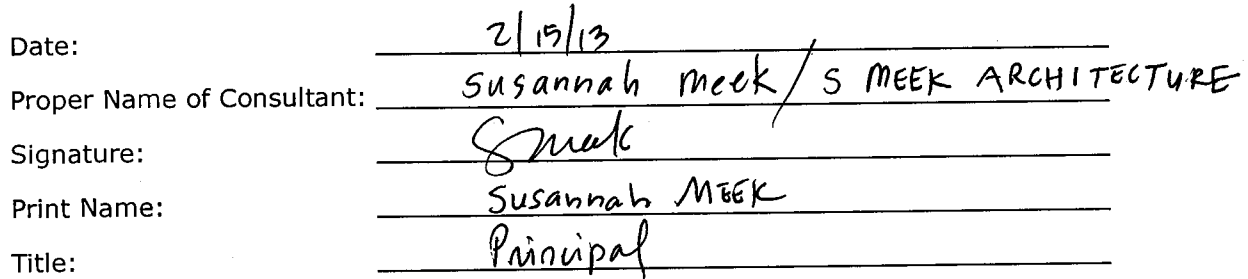 Date: 2/15/13
Proper Name of Consultant: Susannah Meek / S MEEK ARCHITECTURE
Signature: SMeek
Print Name: Susannah MEEK
Title: Principal